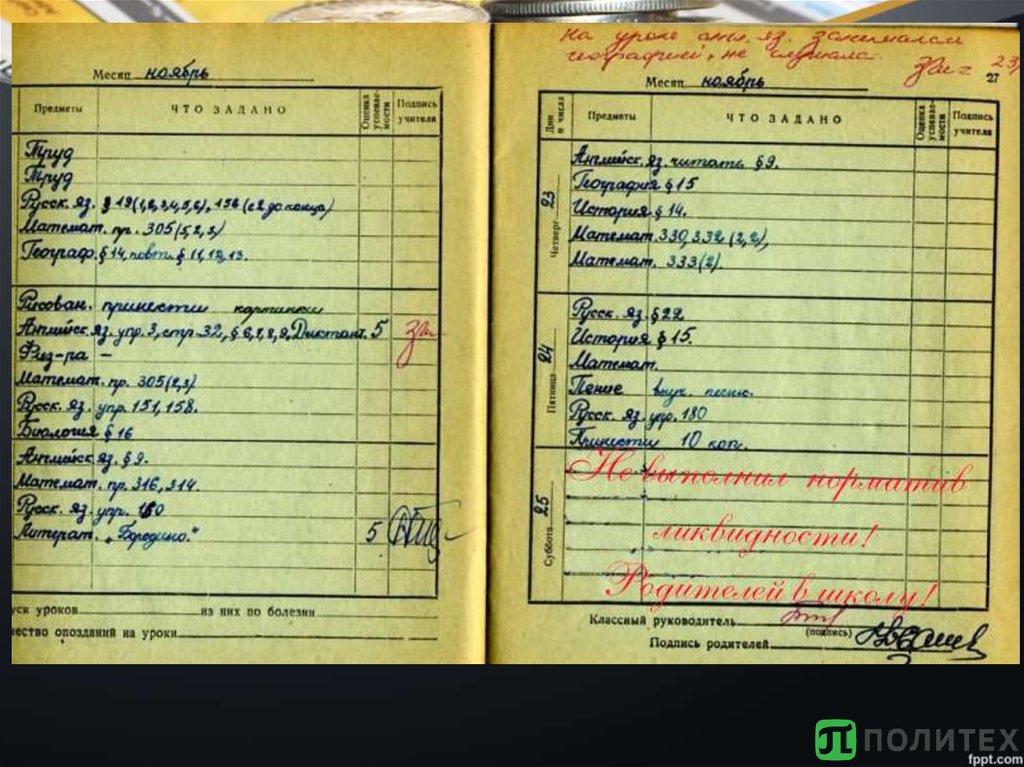 Месяц ноябрь
Предметы ЧТО ЗАДАНО Оценка успеваемости Подпись учителя
Труд
Труд
Русск. яз. § 19 (1,2,3,4,5,6), 156 (с 2 до конца)
Математ. пр. 305 (5,2,3)
Географ. § 14, повт. § 11, 12, 13.
Рисован. принести картинки
Английск. яз. упр. 3, стр. 32, § 6,7,8,9, Диктант. 5
Физ-ра —
Математ. пр. 305 (2,3)
Русск. яз. упр. 151, 158.
Биология § 16
Английск. яз. § 9.
Математ. пр. 316, 314.
Русск. яз. упр. 180
Литерат. „Бородино." 5
уск уроков из них по болезни
чество опозданий на уроки
На уроке анг. яз. занималась
географией, не слушала.
Месяц ноябрь 27
Дни и числа Предметы ЧТО ЗАДАНО Оценка успеваемости Подпись учителя
Четверг 23
Английск. яз. читать § 9.
География § 15
История § 14.
Математ. 330, 332 (2,2),
Математ. 333 (2).
Пятница 24
Русск. яз. § 22
История § 15.
Математ.
Пение выуч. песню.
Русск. яз. упр. 180
Принести 10 коп.
Суббота 25
Не выполнил норматив
ликвидности!
Родителей в школу!
Классный руководитель
(подпись)
Подпись родителей
ПОЛИТЕХ
fppt.com